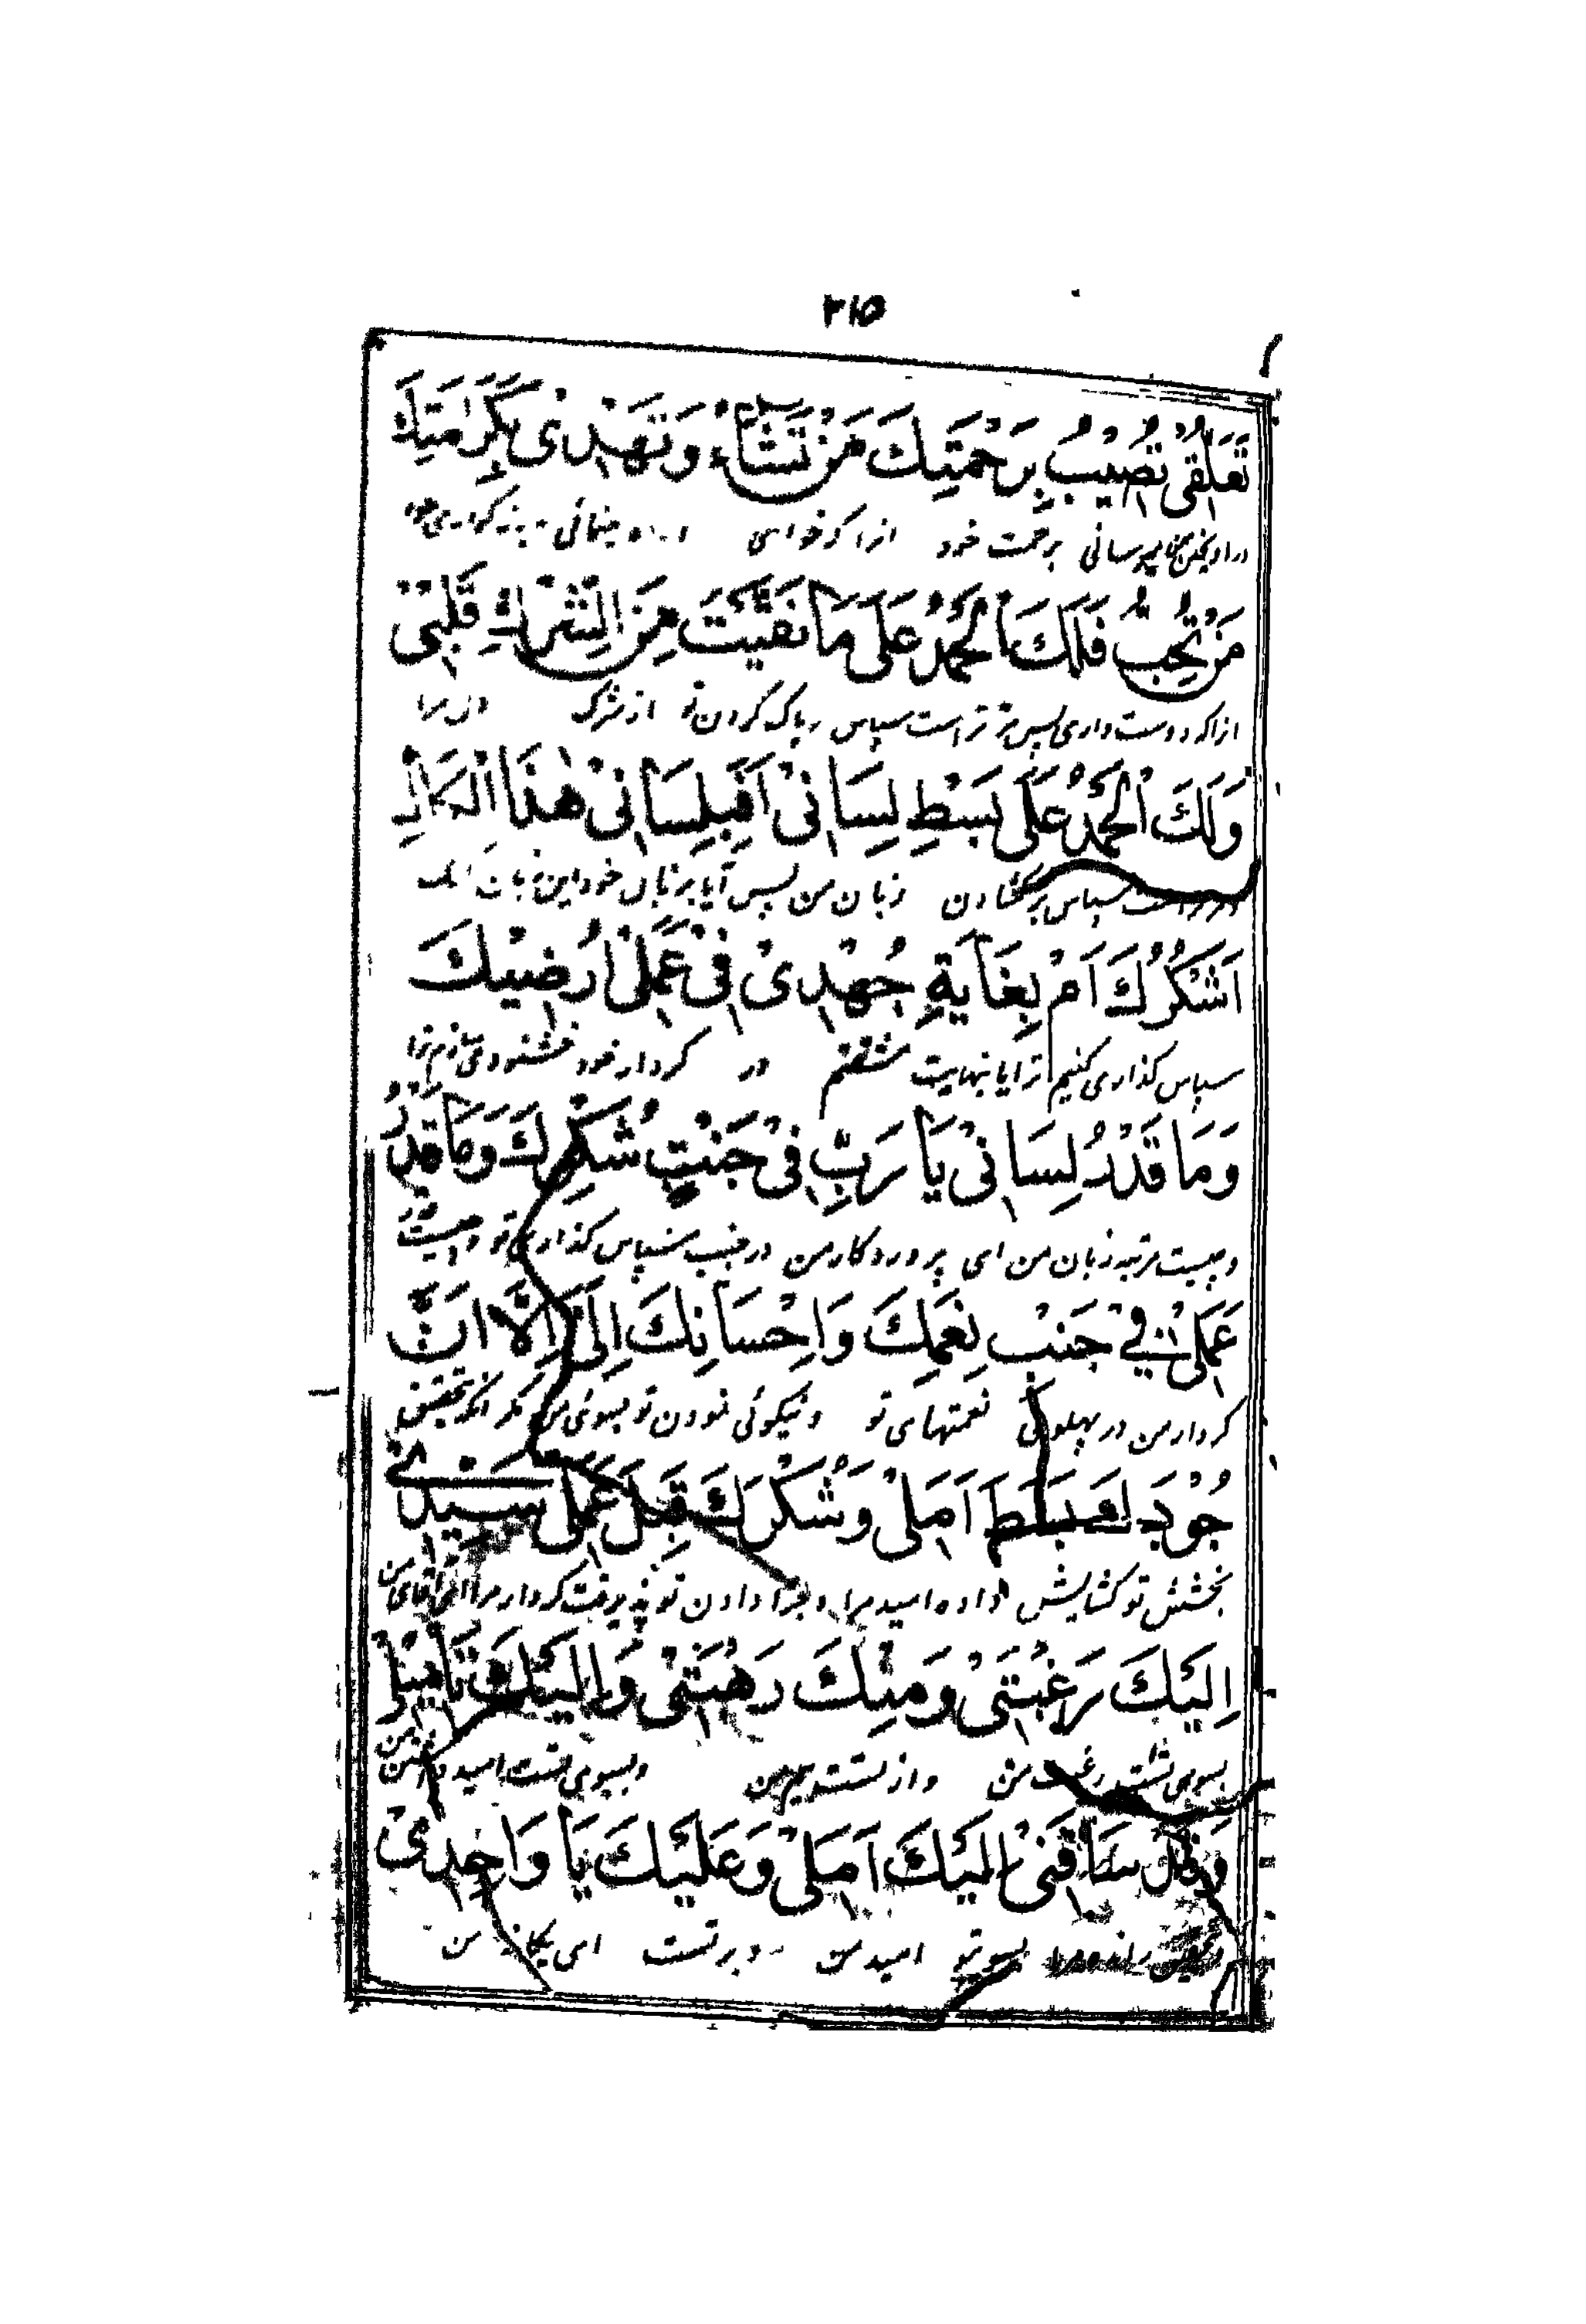 ۳۱۵
تَعَلُّقی تُصیبُ بِرَحْمَتِكَ مَنْ تَشَاءُ وَتَهْدی بِكَرَامَتِكَ
برحمت خود
مَنْ تُحِبُّ فَلَكَ الْحَمْدُ عَلَی مَا نَقَّیْتَ مِنَ الشِّرْكِ قَلْبی
دوست داری پس مر تراست سپاس بر پاک کردن تو از شرک دل مرا
وَلَكَ الْحَمْدُ عَلَی بَسْطِ لِسَانی اَفَبِلِسَانی هٰذَا الْكَالِّ
سپاس بر گشادن زبان من پس آیا بزبان خود این زبان
اَشْكُرُكَ اَمْ بِغَایَةِ جُهْدی فی عَمَلی اُرْضیكَ
سپاس گذاری کنیم ترا یا بنهایت مشقتم در کردار خود خشنود می سازم ترا
وَمَا قَدْرُ لِسَانی یَا رَبِّ فی جَنْبِ شُكْرِكَ وَمَا قَدْرُ
وچیست مرتبه زبان من ای پروردکار من در جنب سپاس گذاری تو وچیست قدر
عَمَلی فی جَنْبِ نِعَمِكَ وَاِحْسَانِكَ اِلَیَّ اِلَّا اَنَّ
کردار من در پهلوی نعمتهای تو ونیکوئی نمودن تو بسوی من مگر آنکه بتحقیق
جُوْدَكَ بَسَطَ اَمَلی وَشُكْرَكَ قَبِلَ عَمَلی سَیِّدی
بخشش تو کشایش داده امید مرا وجزا دادن تو پذیرفت کردار مرا ای آقای من
اِلَیْكَ رَغْبَتی وَمِنْكَ رَهْبَتی وَاِلَیْكَ تَأْمیلی
بسوی تست رغبت من واز تست من وبسوی تست امید من
وَقَدْ سَاقَنی اِلَیْكَ اَمَلی وَعَلَیْكَ یَا وَاحِدی
بسوی تو امید من وبر تست ای یگانه من